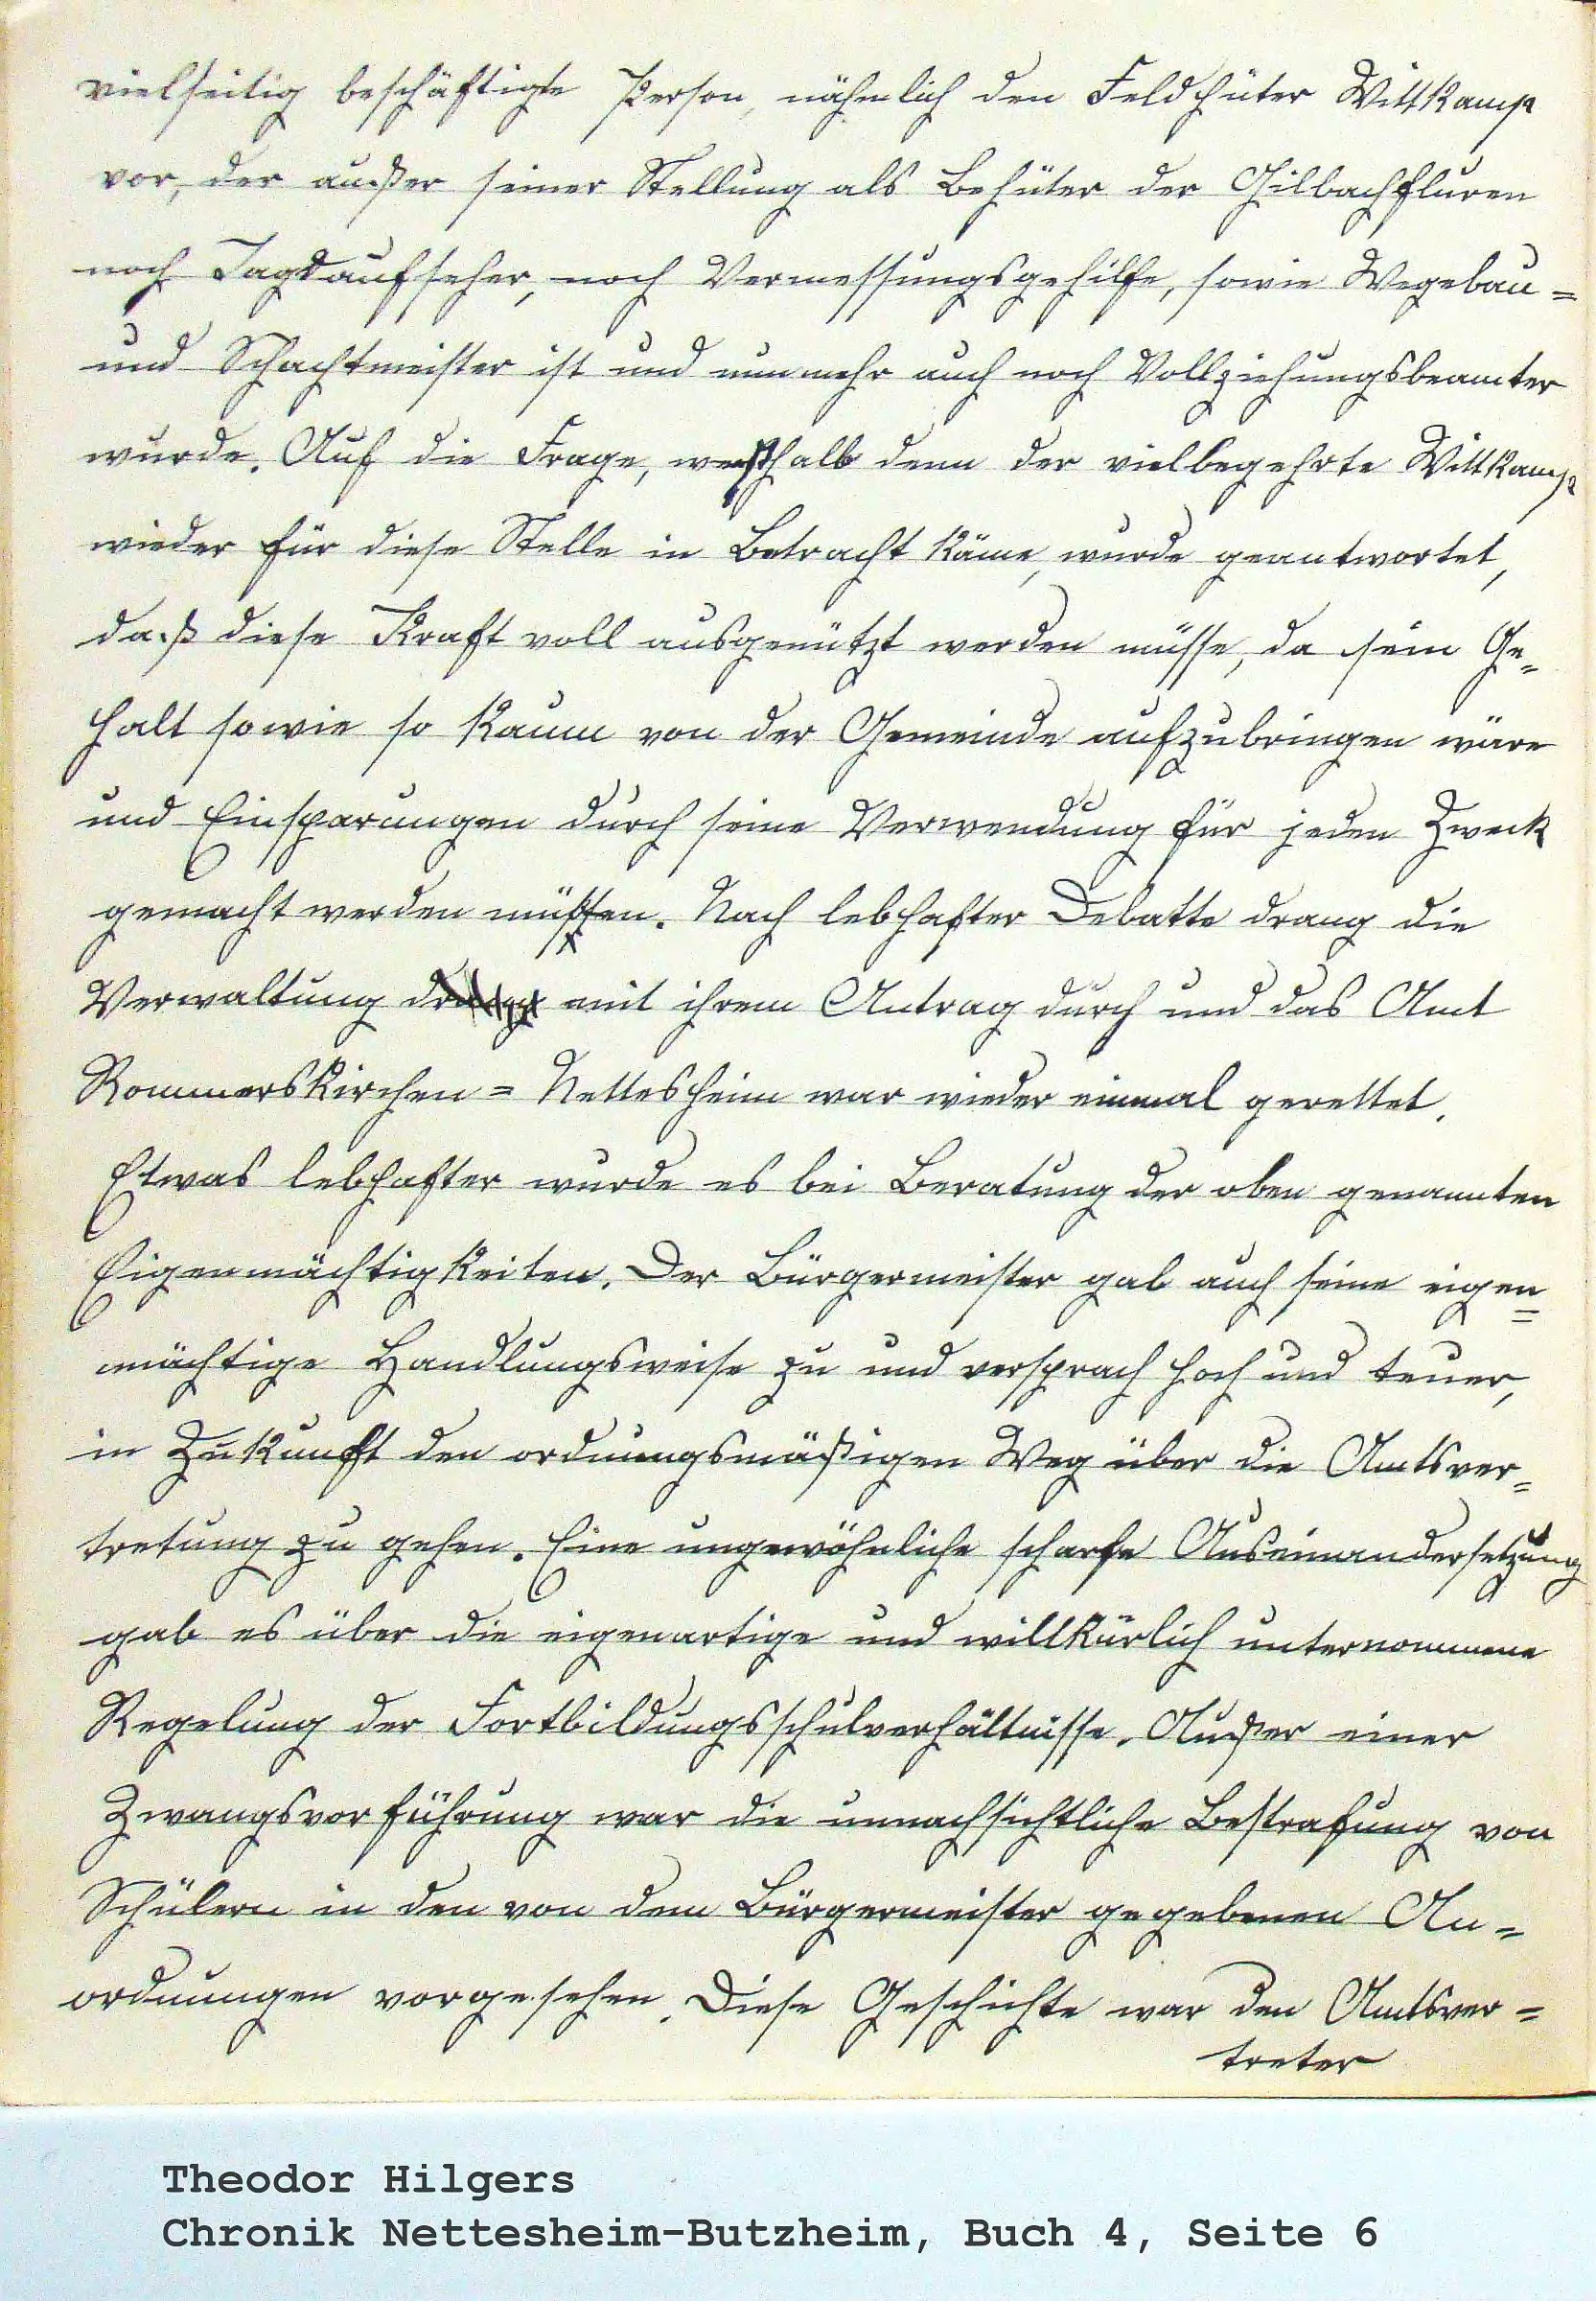 vielseitig beschäftigte Person, nähmlich den Feldhüter Wittkamp
vor, der außer seiner Stellung als Behüter der Gilbachfluren
noch Jagdaufseher, noch Vermessungsgehilfe, sowie Wegebau=
und Schachtmeister ist und nunmehr auch noch Vollziehungsbeamter
wurde. Auf die Frage, weßhalb denn der vielbegehrte Wittkamp
wieder für diese Stelle in Betracht käme, wurde geantwortet,
daß diese Kraft voll ausgenützt werden müsse, da sein Ge=
halt sowie so kaum von der Gemeinde aufzubringen wäre
und Einsparungen durch seine Verwendung für jeden Zweck
gemacht werden müßten. Nach lebhafter Debatte drang die
Verwaltung mit ihrem Antrag durch und das Amt
Rommerskirchen = Nettesheim war wieder einmal gerettet.
Etwas lebhafter wurde es bei Beratung der oben genannten
Eigenmächtigkeiten. Der Bürgermeister gab auch seine eigen=
mächtige Handlungsweise zu und versprach hoch und teuer,
in Zukunft den ordnungsmäßigen Weg über die Amtsver=
tretung zu gehen. Eine ungewöhnliche scharfe Auseinandersetzung
gab es über die eigenartige und willkürlich unternommene
Regelung der Fortbildungsschulverhältnisse. Außer einer
Zwangsvorführung war die unnachsichtliche Bestrafung von
Schülern in den von dem Bürgermeister gegebenen An=
ordnungen vorgesehen. Diese Geschichte war den Amtsver=
treter
Theodor Hilgers
Chronik Nettesheim-Butzheim, Buch 4, Seite 6